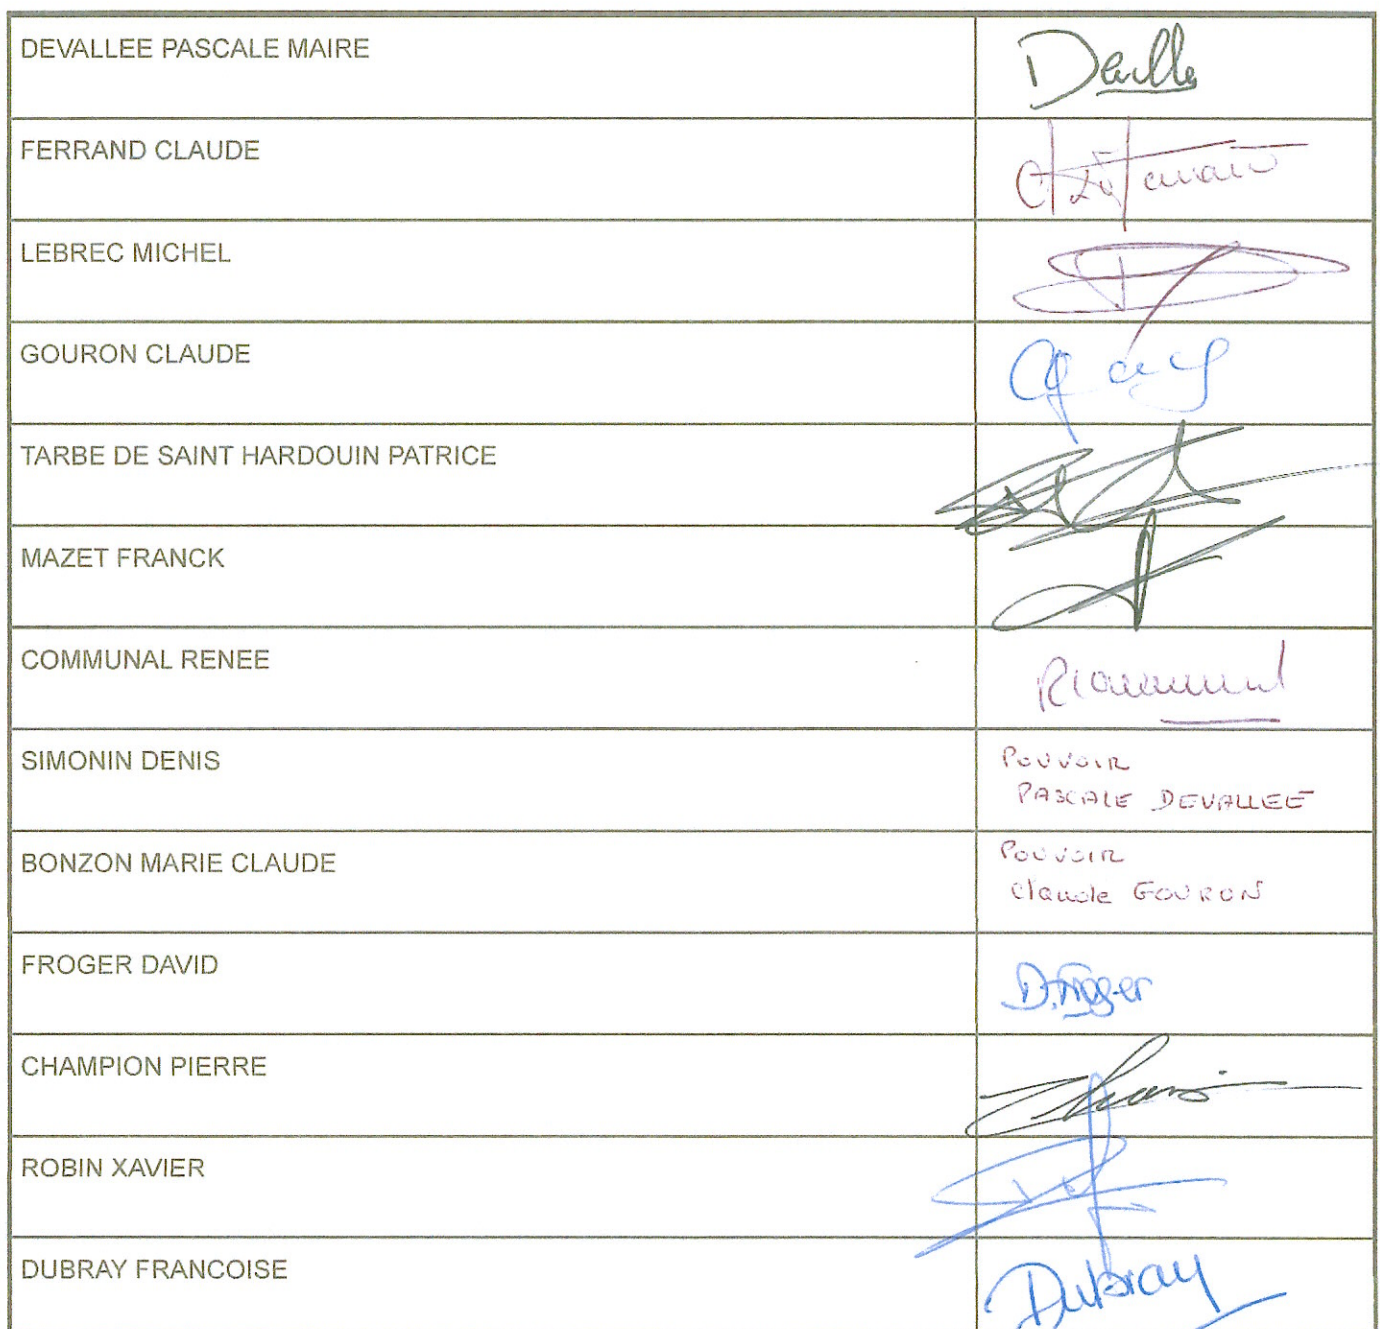 DEVALLEE PASCALE MAIRE
FERRAND CLAUDE
LEBREC MICHEL
GOURON CLAUDE
TARBE DE SAINT HARDOUIN PATRICE
MAZET FRANCK
COMMUNAL RENEE
SIMONIN DENIS
POUVOIR
PASCALE DEVALLEE
BONZON MARIE CLAUDE
POUVOIR
Claude GOURON
FROGER DAVID
D.Froger
CHAMPION PIERRE
ROBIN XAVIER
DUBRAY FRANCOISE
Dubray